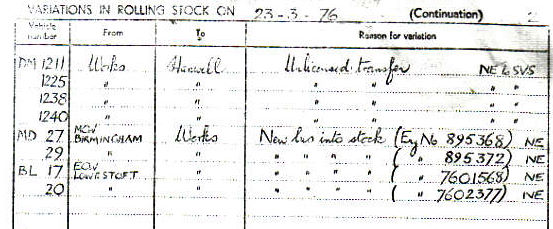 VARIATIONS IN ROLLING STOCK ON 23-3-76 (Continuation) 2
Vehicle number From To Reason for variation
DM 1211 Works Hanwell Unlicensed transfer NE & SVS
1225 " " " " " "
1238 " " " " " "
1240 " " " " " "
MD 27 MCW BIRMINGHAM Works New bus into stock (Eng No 895368) NE
29 " " " " " " ( " 895372) NE
BL 17 ECW LOWESTOFT " " " " " ( " 7601568) NE
20 " " " " " " ( " 7602377) NE